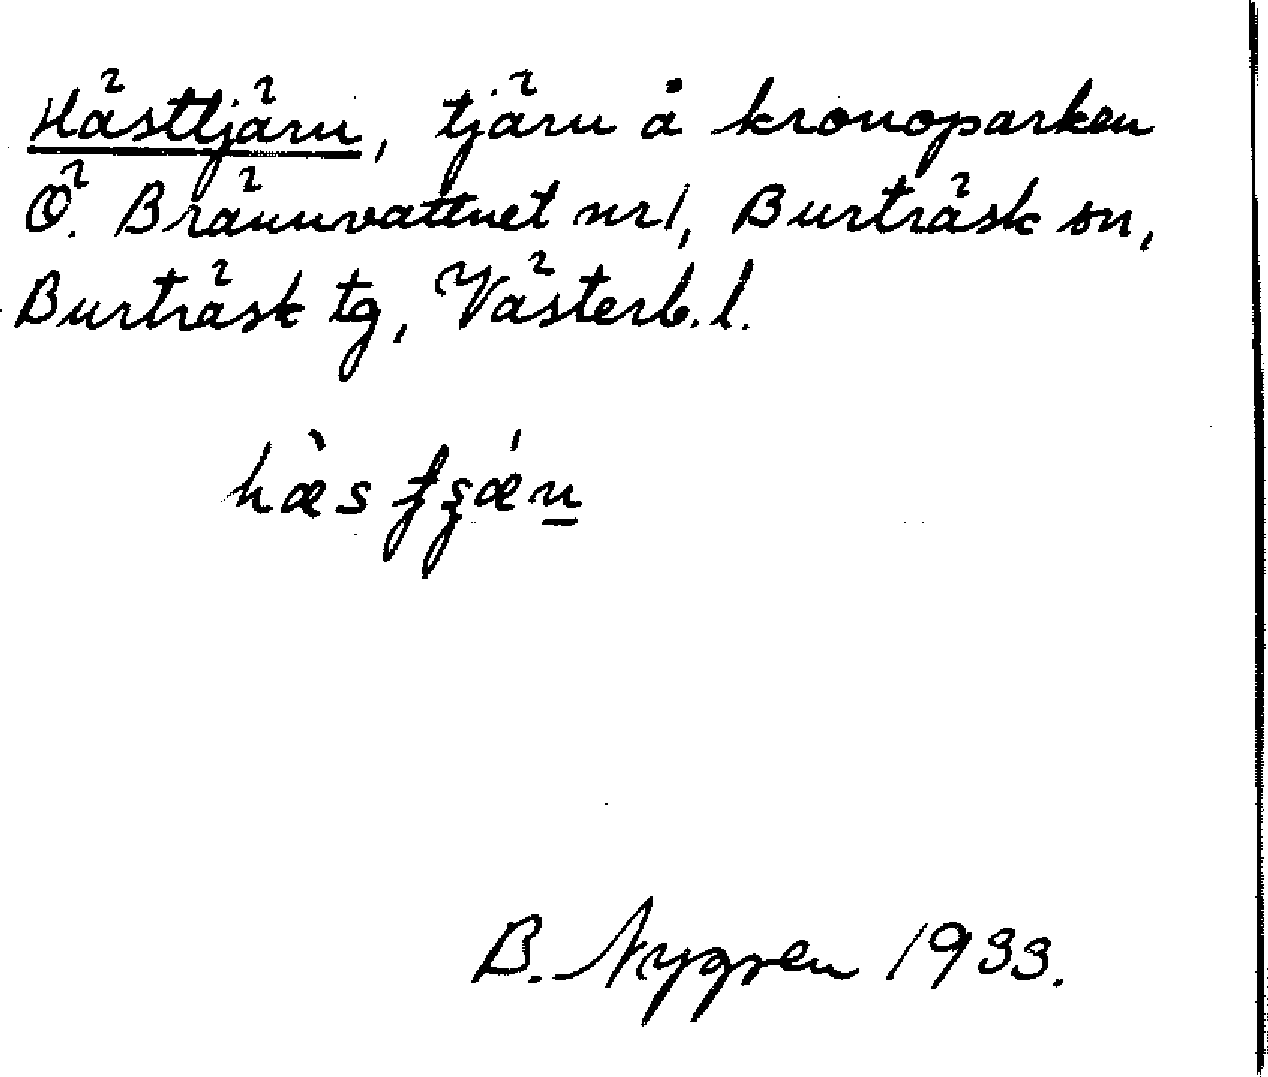 Hästtjärn, tjärn å kronoparken
Ö. Brännvattnet nr 1, Burträsk sn,
Burträsk tg, Västerb. l.
B. Nygren 1933.